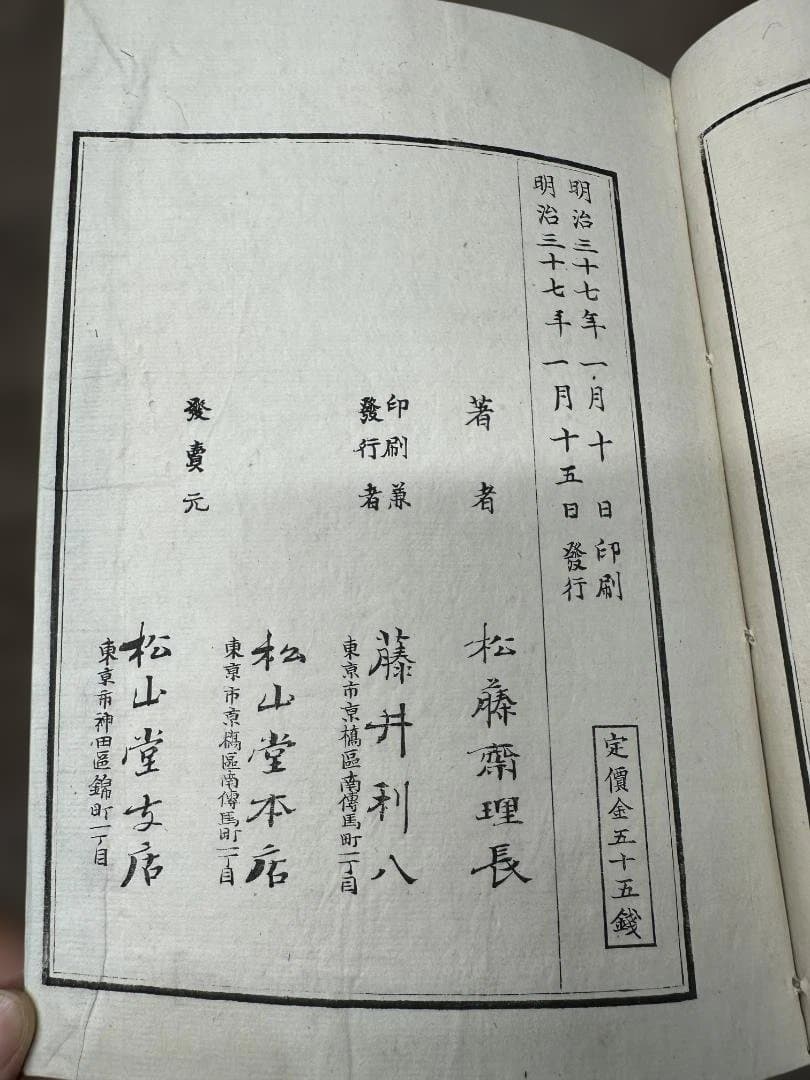 明治三十七年一月十日印刷
明治三十七年一月十五日發行
定價金五十五錢
著者
松藤齋理長
印刷兼
發行者
東京市京橋區南傳馬町一丁目
藤井利八
發賣元
東京市京橋區南傳馬町一丁目
松山堂本店
東京市神田區錦町一丁目
松山堂支店